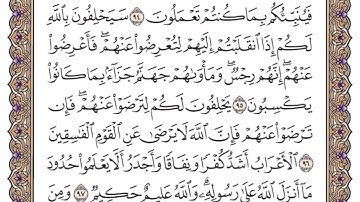 فَيُنَبِّئُكُم بِمَا كُنتُمْ تَعْمَلُونَ ٩٤ سَيَحْلِفُونَ بِاللَّهِ
لَكُمْ إِذَا انقَلَبْتُمْ إِلَيْهِمْ لِتُعْرِضُوا عَنْهُمْ ۖ فَأَعْرِضُوا
عَنْهُمْ ۖ إِنَّهُمْ رِجْسٌ ۖ وَمَأْوَاهُمْ جَهَنَّمُ جَزَاءً بِمَا كَانُوا
يَكْسِبُونَ ٩٥ يَحْلِفُونَ لَكُمْ لِتَرْضَوْا عَنْهُمْ ۖ فَإِن
تَرْضَوْا عَنْهُمْ فَإِنَّ اللَّهَ لَا يَرْضَىٰ عَنِ الْقَوْمِ الْفَاسِقِينَ
٩٦ الْأَعْرَابُ أَشَدُّ كُفْرًا وَنِفَاقًا وَأَجْدَرُ أَلَّا يَعْلَمُوا حُدُودَ
مَا أَنزَلَ اللَّهُ عَلَىٰ رَسُولِهِ ۗ وَاللَّهُ عَلِيمٌ حَكِيمٌ ٩٧ وَمِنَ